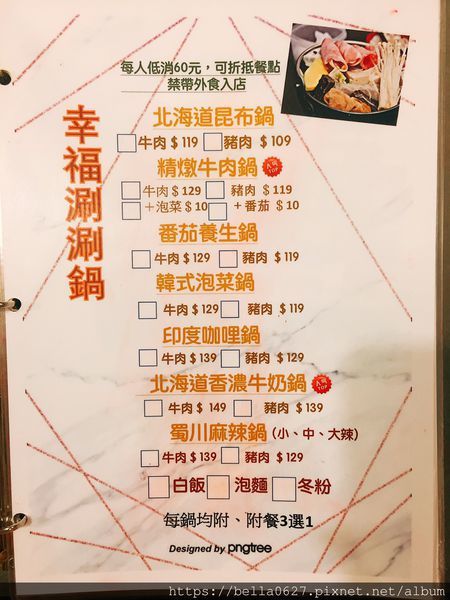 每人低消60元，可折抵餐點
禁帶外食入店
幸福涮涮鍋
北海道昆布鍋
牛肉＄119 豬肉＄109
精燉牛肉鍋 人氣TOP
牛肉＄129 豬肉＄119
＋泡菜＄10 ＋番茄＄10
番茄養生鍋
牛肉＄129 豬肉＄119
韓式泡菜鍋
牛肉＄129 豬肉＄119
印度咖哩鍋
牛肉＄139 豬肉＄129
北海道香濃牛奶鍋 人氣TOP
牛肉＄149 豬肉＄139
蜀川麻辣鍋（小、中、大辣）
牛肉＄139 豬肉＄129
白飯 泡麵 冬粉
每鍋均附、附餐3選1
Designed by pngtree
https://bella0627.pixnet.net/album